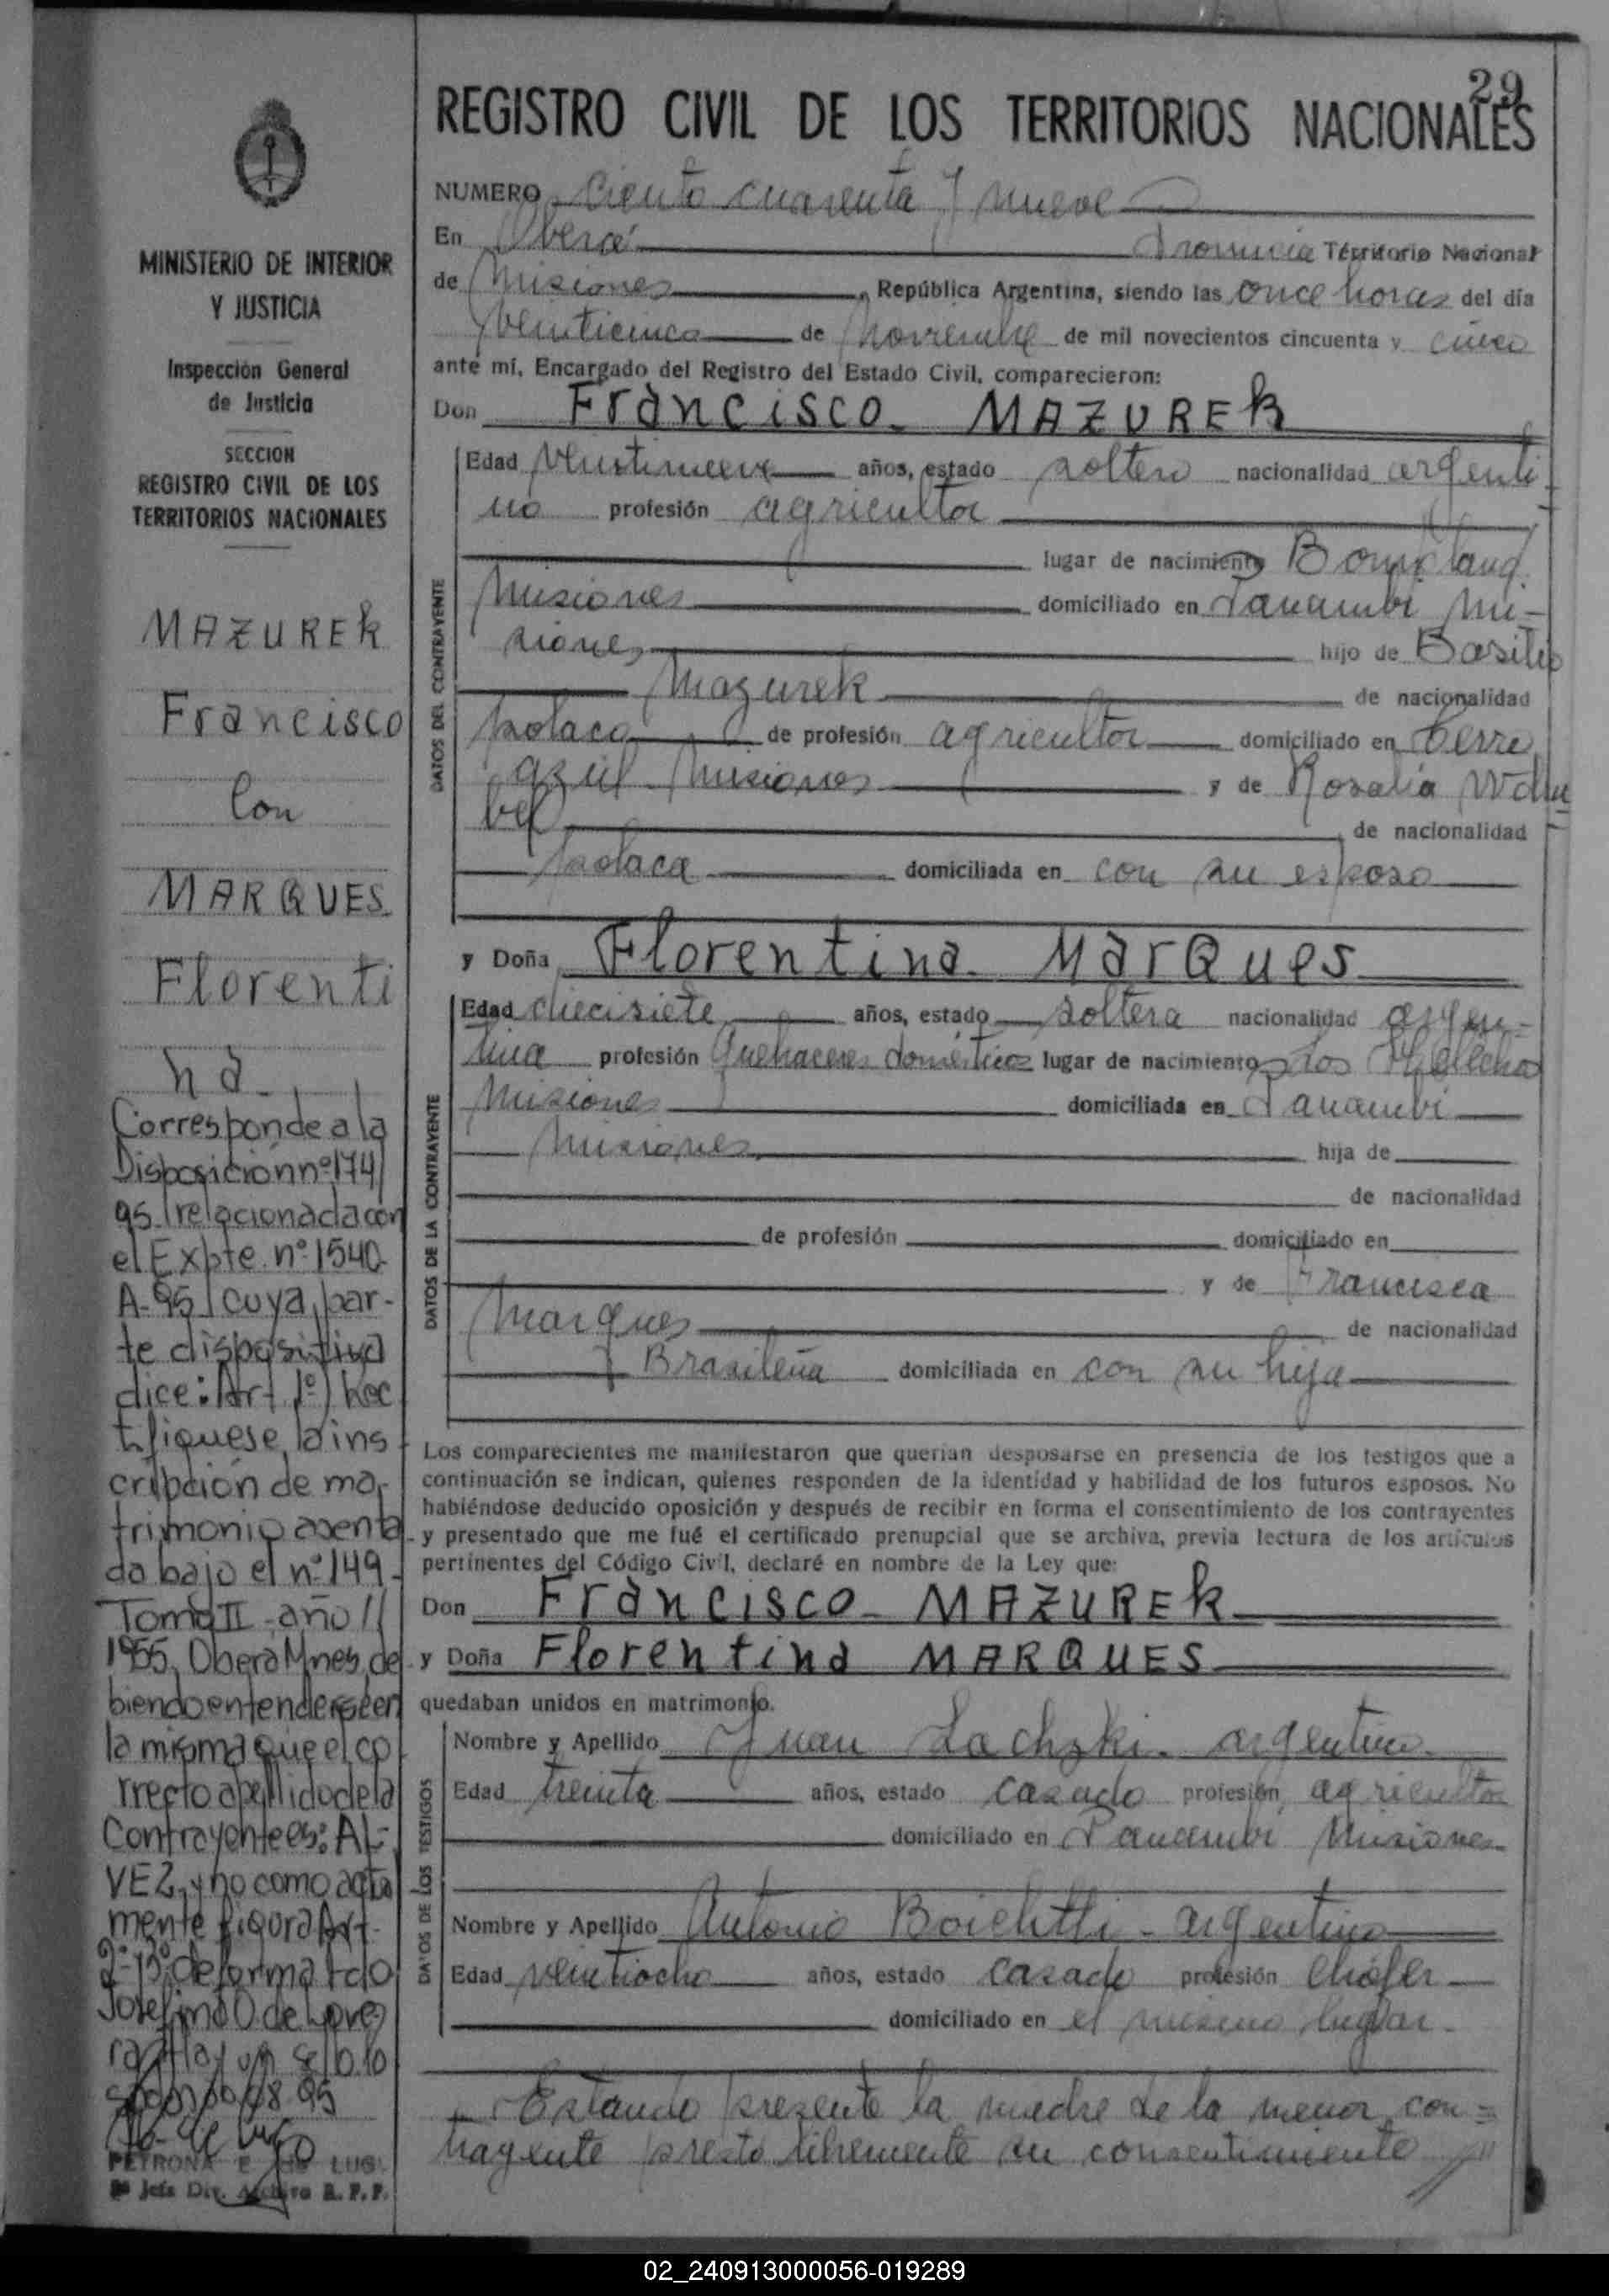 29
REGISTRO CIVIL DE LOS TERRITORIOS NACIONALES
MINISTERIO DE INTERIOR
Y JUSTICIA
Inspección General
de Justicia
SECCION
REGISTRO CIVIL DE LOS
TERRITORIOS NACIONALES
MAZUREK
Francisco
Con
MARQUES
Florenti
na
Corresponde a la
Disposición nº 174/
95 relacionada con
el Expte. nº 1540-
A-95 cuya par-
te dispositiva
dice: Art 1º) Rec
tifiquese la ins
cripción de ma-
trimonio asenta
da bajo el nº 149-
Tomo II - año
1955, Obera Mnes, de
biendo entenderse en
la misma que el co
rrecto apellido de la
Contrayente es: AL-
VEZ y no como actual
mente figura Art-
2º de forma fdo
Josefina O. de
un sello
95
PETRONA E. DE LUGO
Jefa Div. Archivo R. P. P.
NUMERO ciento cuarenta y nueve
En Oberá Provincia Territorio Nacional
de Misiones, República Argentina, siendo las once horas del día
veinticinco de Noviembre de mil novecientos cincuenta y cinco
ante mí, Encargado del Registro del Estado Civil, comparecieron:
Don Francisco MAZUREK
DATOS DEL CONTRAYENTE
Edad veintinueve años, estado soltero nacionalidad argenti-
no profesión agricultor
lugar de nacimiento Bompland
Misiones domiciliado en Panambí Mi-
siones hijo de Basilio
Mazurek de nacionalidad
polaca de profesión agricultor domiciliado en Cerro
azul Misiones y de Rosalía
de nacionalidad
polaca domiciliada en con su esposo
y Doña Florentina MARQUES
DATOS DE LA CONTRAYENTE
Edad diecisiete años, estado soltera nacionalidad argen-
tina profesión Quehaceres domésticos lugar de nacimiento Los Helechos
Misiones domiciliada en Panambí
Misiones hija de
de nacionalidad
de profesión domiciliado en
y de Francisca
Marques de nacionalidad
Brasileña domiciliada en con su hija
Los comparecientes me manifestaron que querían desposarse en presencia de los testigos que a
continuación se indican, quienes responden de la identidad y habilidad de los futuros esposos. No
habiéndose deducido oposición y después de recibir en forma el consentimiento de los contrayentes
y presentado que me fué el certificado prenupcial que se archiva, previa lectura de los artículos
pertinentes del Código Civil, declaré en nombre de la Ley que:
Don Francisco MAZUREK
y Doña Florentina MARQUES
quedaban unidos en matrimonio.
DATOS DE LOS TESTIGOS
Nombre y Apellido Juan Lachzki. argentino
Edad treinta años, estado casado profesión agricultor
domiciliado en Panambí Misiones
Nombre y Apellido Antonio - argentino
Edad veintiocho años, estado casado profesión Chófer
domiciliado en el mismo lugar
Estando presente la madre de la menor con-
trayente prestó libremente su consentimiento
02_240913000056-019289